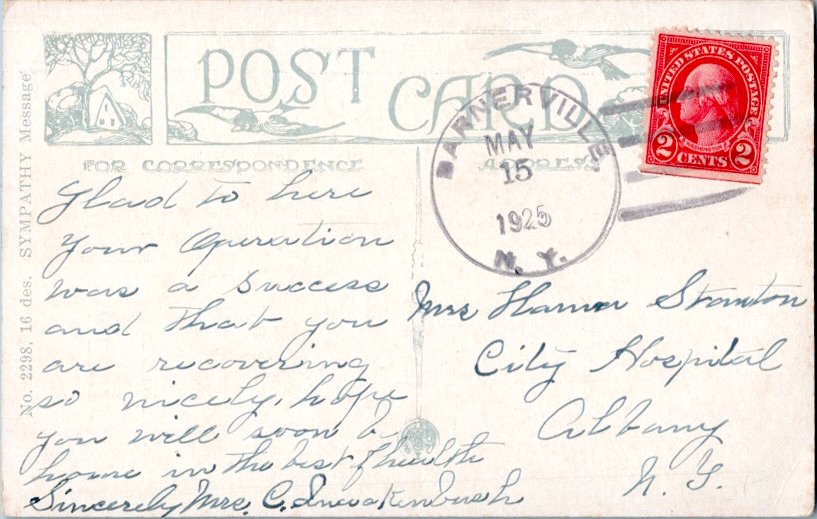 POST CARD
FOR CORRESPONDENCE
ADDRESS
No. 2298, 16 des. SYMPATHY Message
BARNERVILLE,
MAY
15
1925
N. Y.
UNITED STATES POSTAGE
WASHINGTON
2 CENTS 2
Glad to here
your Operation
was a success
and that you
are recovering
so nicely, hope
you will soon b
home in the best of health
Sincerely Mrs. C.
Mrs Stanton
City Hospital
Albany
N. Y.